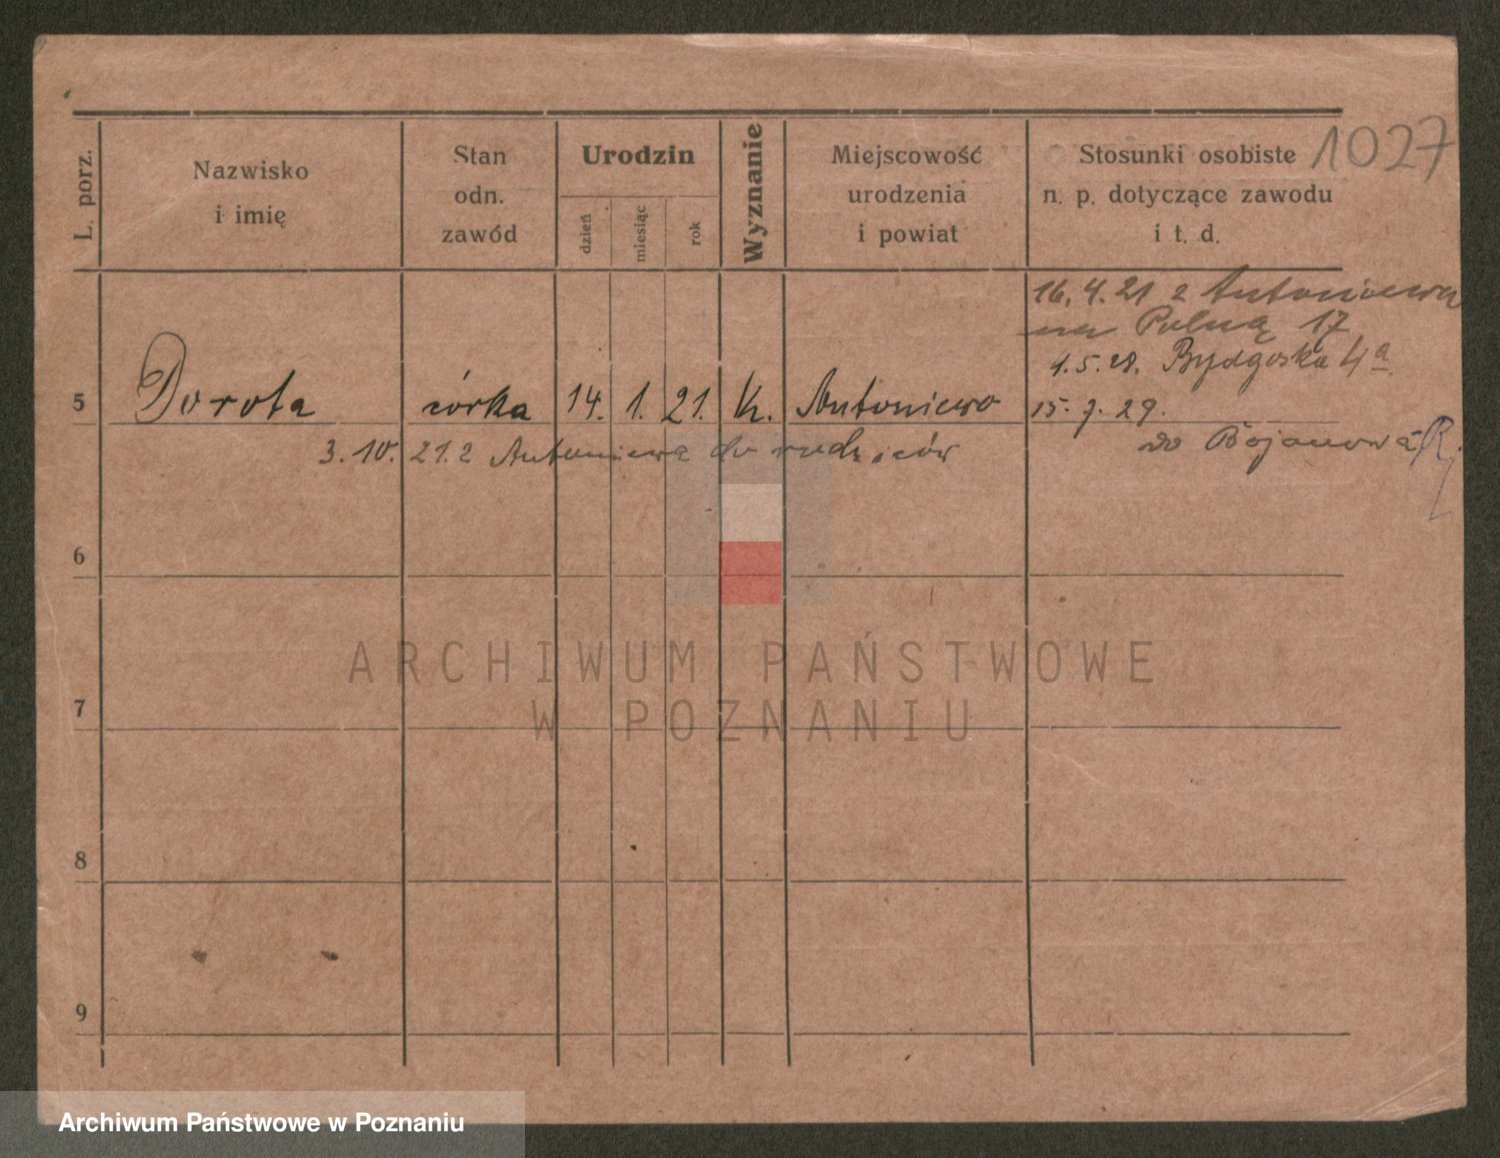 1027
L. porz.
Nazwisko
i imię
Stan
odn.
zawód
Urodzin
dzień
miesiąc
rok
Wyznanie
Miejscowość
urodzenia
i powiat
Stosunki osobiste
n. p. dotyczące zawodu
i t. d.
16. 4. 21 z Antoniewa
na Polną 17
4. 5. 28. Bydgoska 4a
5 Dorota córka 14. 1. 21. K. Antoniewo 15. 7. 29.
do Bojanowa
3. 10. 21. z Antoniewa do rodziców
6
7
8
9
ARCHIWUM PAŃSTWOWE
W POZNANIU
Archiwum Państwowe w Poznaniu